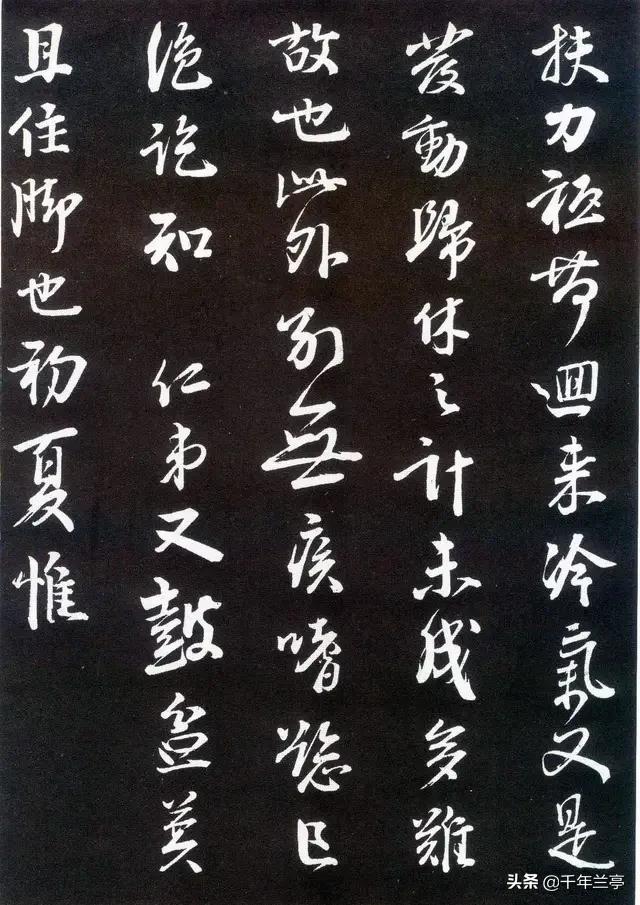 扶力祗帶迴来冷氣又是
發動歸休之計未成多難
故也此外别無疾嗜慾已
絕訖知 仁弟又鼓盆莫
且住脚也初夏惟
头条 @千年兰亭